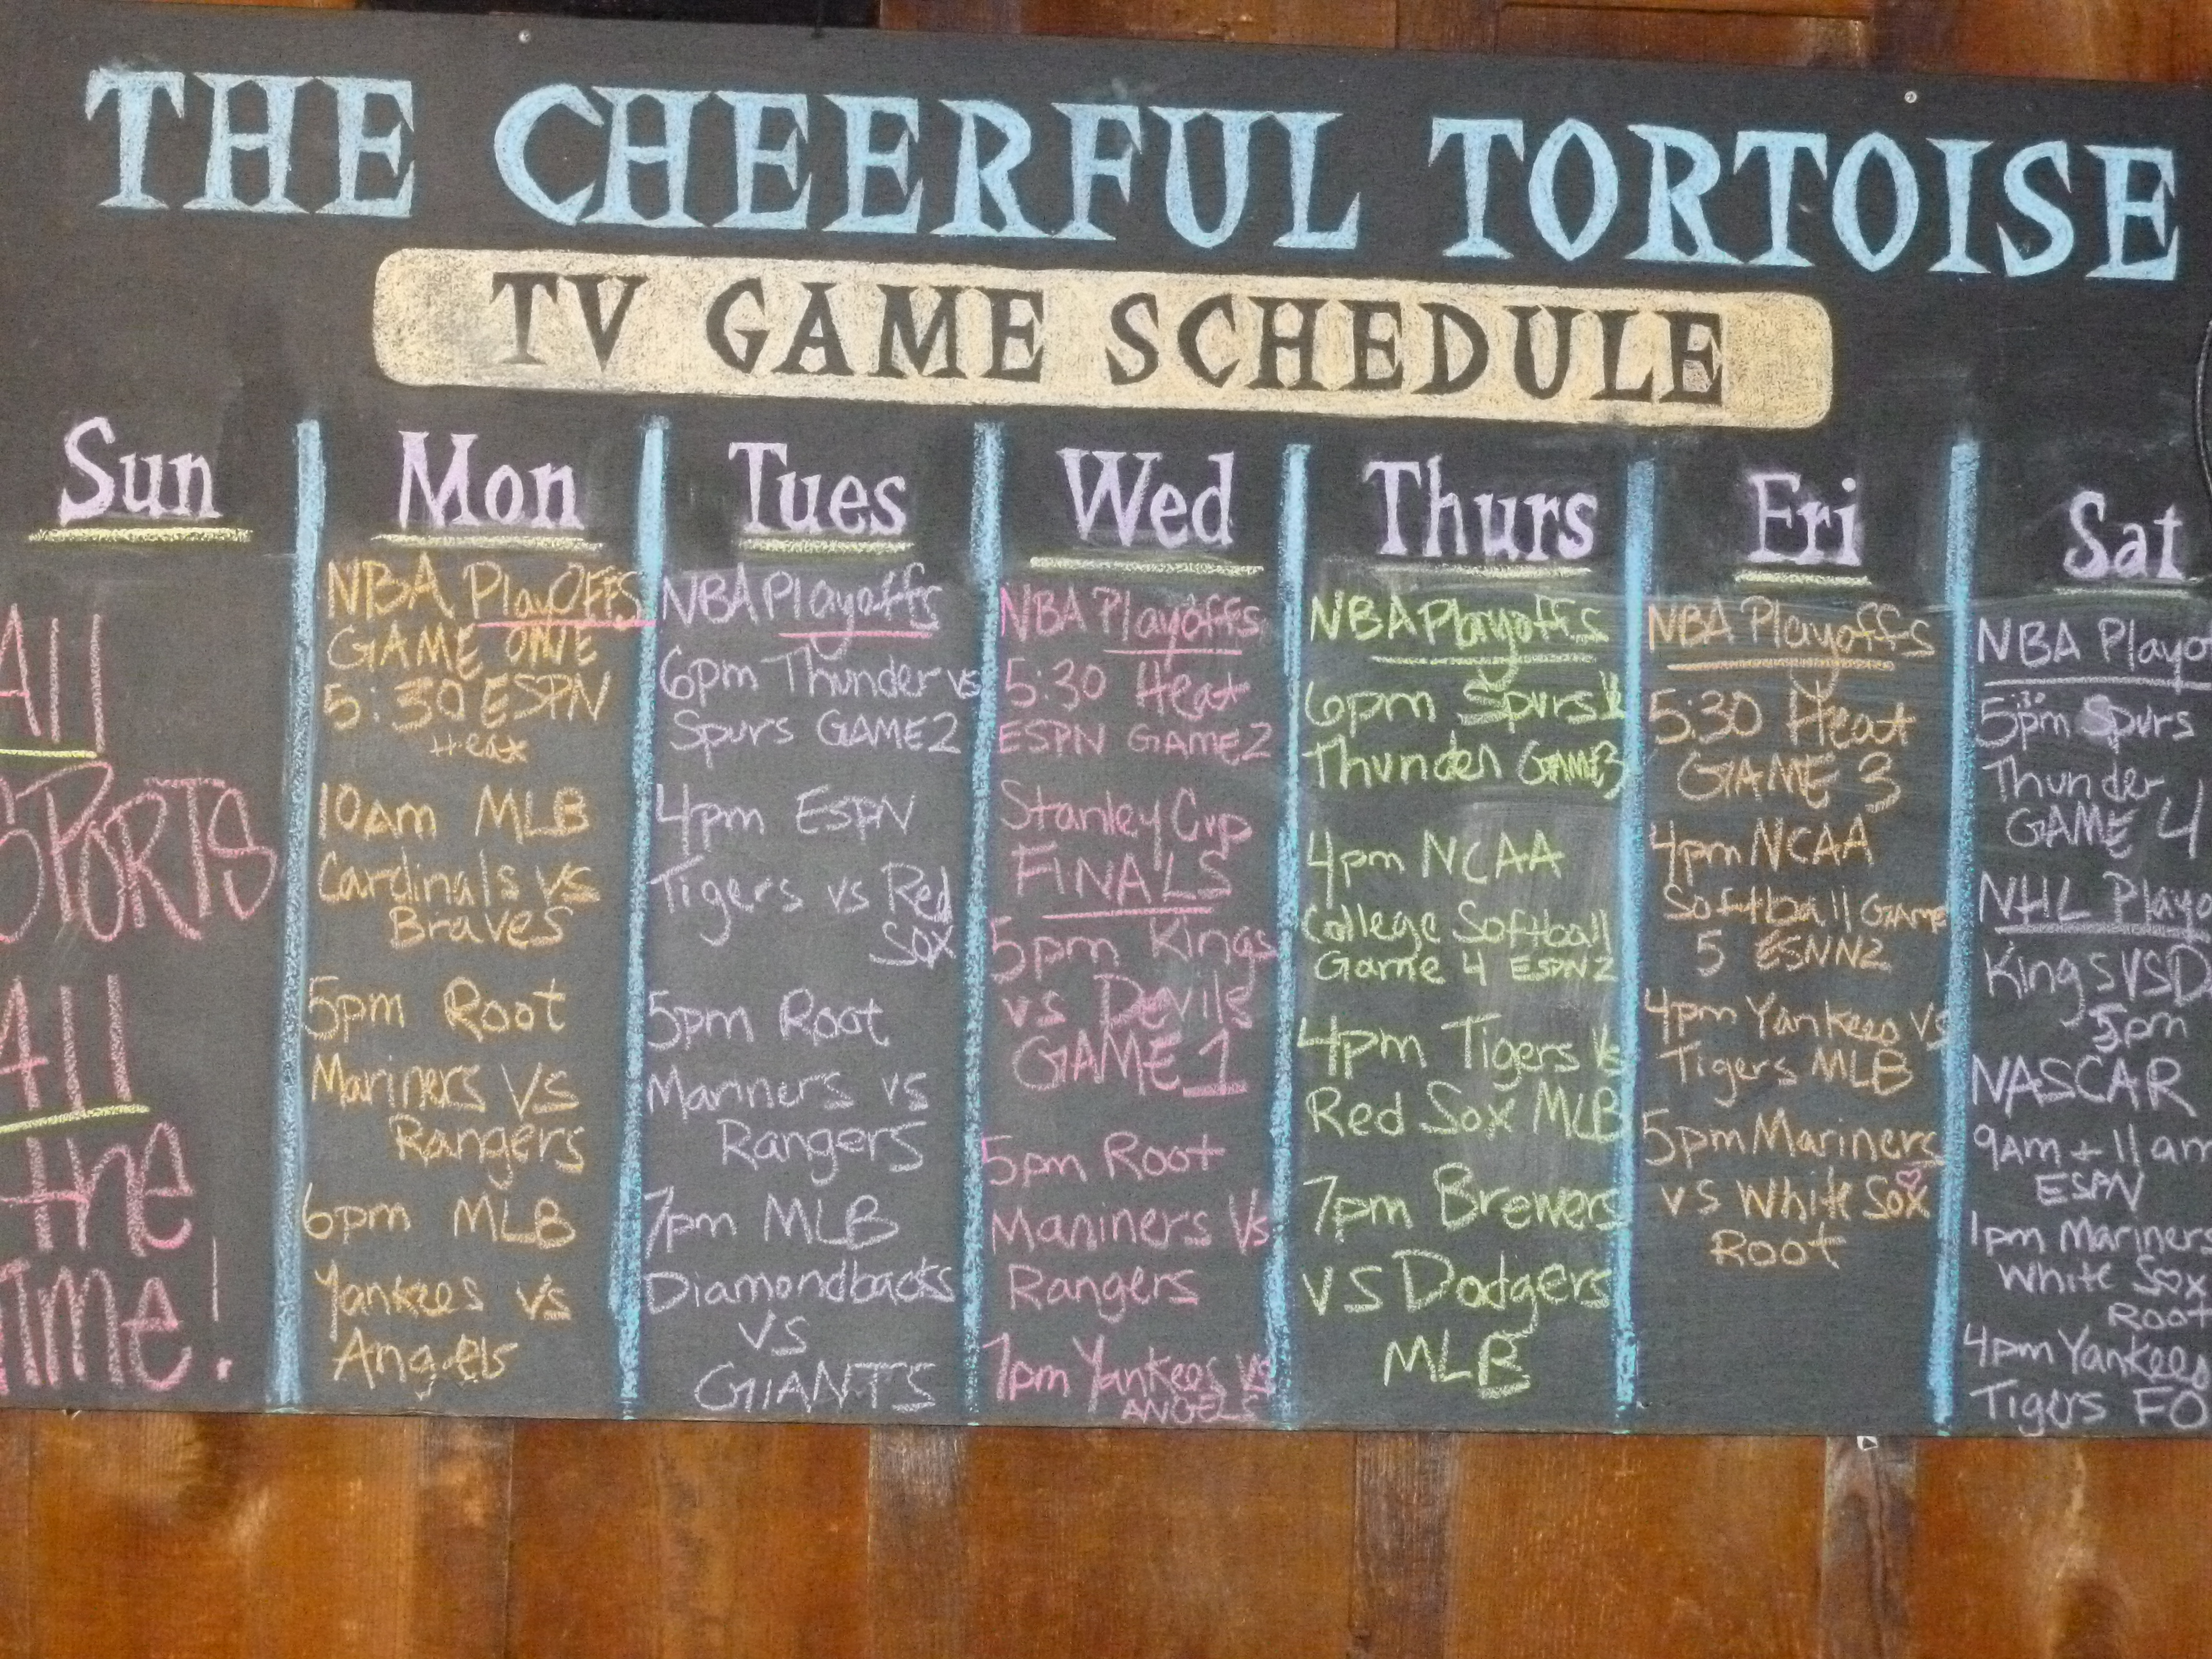 THE CHEERFUL TORTOISE
TV GAME SCHEDULE
Sun
All
SPORTS
All
the
Time!
Mon
NBA PlayOFFS
GAME ONE
5:30 ESPN
Heat
10am MLB
Cardinals vs
Braves
5pm Root
Mariners VS
Rangers
6pm MLB
Yankees vs
Angels
Tues
NBA Playoffs
6pm Thunder vs
Spurs GAME 2
4pm ESPN
Tigers vs Red
Sox
5pm Root
Mariners vs
Rangers
7pm MLB
Diamondbacks
VS
GIANTS
Wed
NBA Playoffs
5:30 Heat
ESPN GAME 2
Stanley Cup
FINALS
5pm Kings
vs Devils
GAME 1
5pm Root
Mariners Vs
Rangers
7pm Yankees vs
ANGELS
Thurs
NBA Playoffs
6pm Spurs
Thunder GAME 3
4pm NCAA
College Softball
Game 4 ESPN2
4pm Tigers Vs
Red Sox MLB
7pm Brewers
VS Dodgers
MLB
Fri
NBA Playoffs
5:30 Heat
GAME 3
4pm NCAA
Softball GAME
5 ESNN2
4pm Yankees VS
Tigers MLB
5pm Mariners
vs White Sox
Root
Sat
NBA Playo
5:30pm Spurs
Thunder
GAME 4
NHL Playo
Kings VS D
5pm
NASCAR
9am + 11am
ESPN
1pm Mariners
White Sox
Root
4pm Yankees
Tigers FO